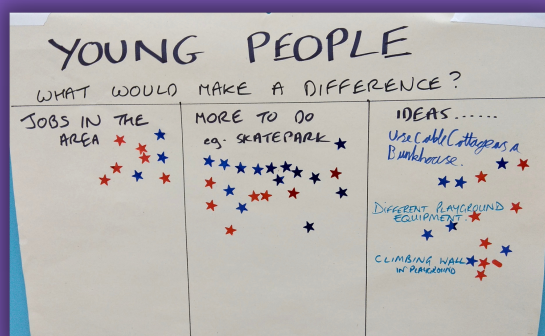 YOUNG PEOPLE
WHAT WOULD MAKE A DIFFERENCE?
JOBS IN THE
AREA
MORE TO DO
eg. SKATEPARK
IDEAS......
Use Coble Cottage as a
Bunkhouse.
DIFFERENT PLAYGROUND
EQUIPMENT.
CLIMBING WALL
IN PLAYGROUND